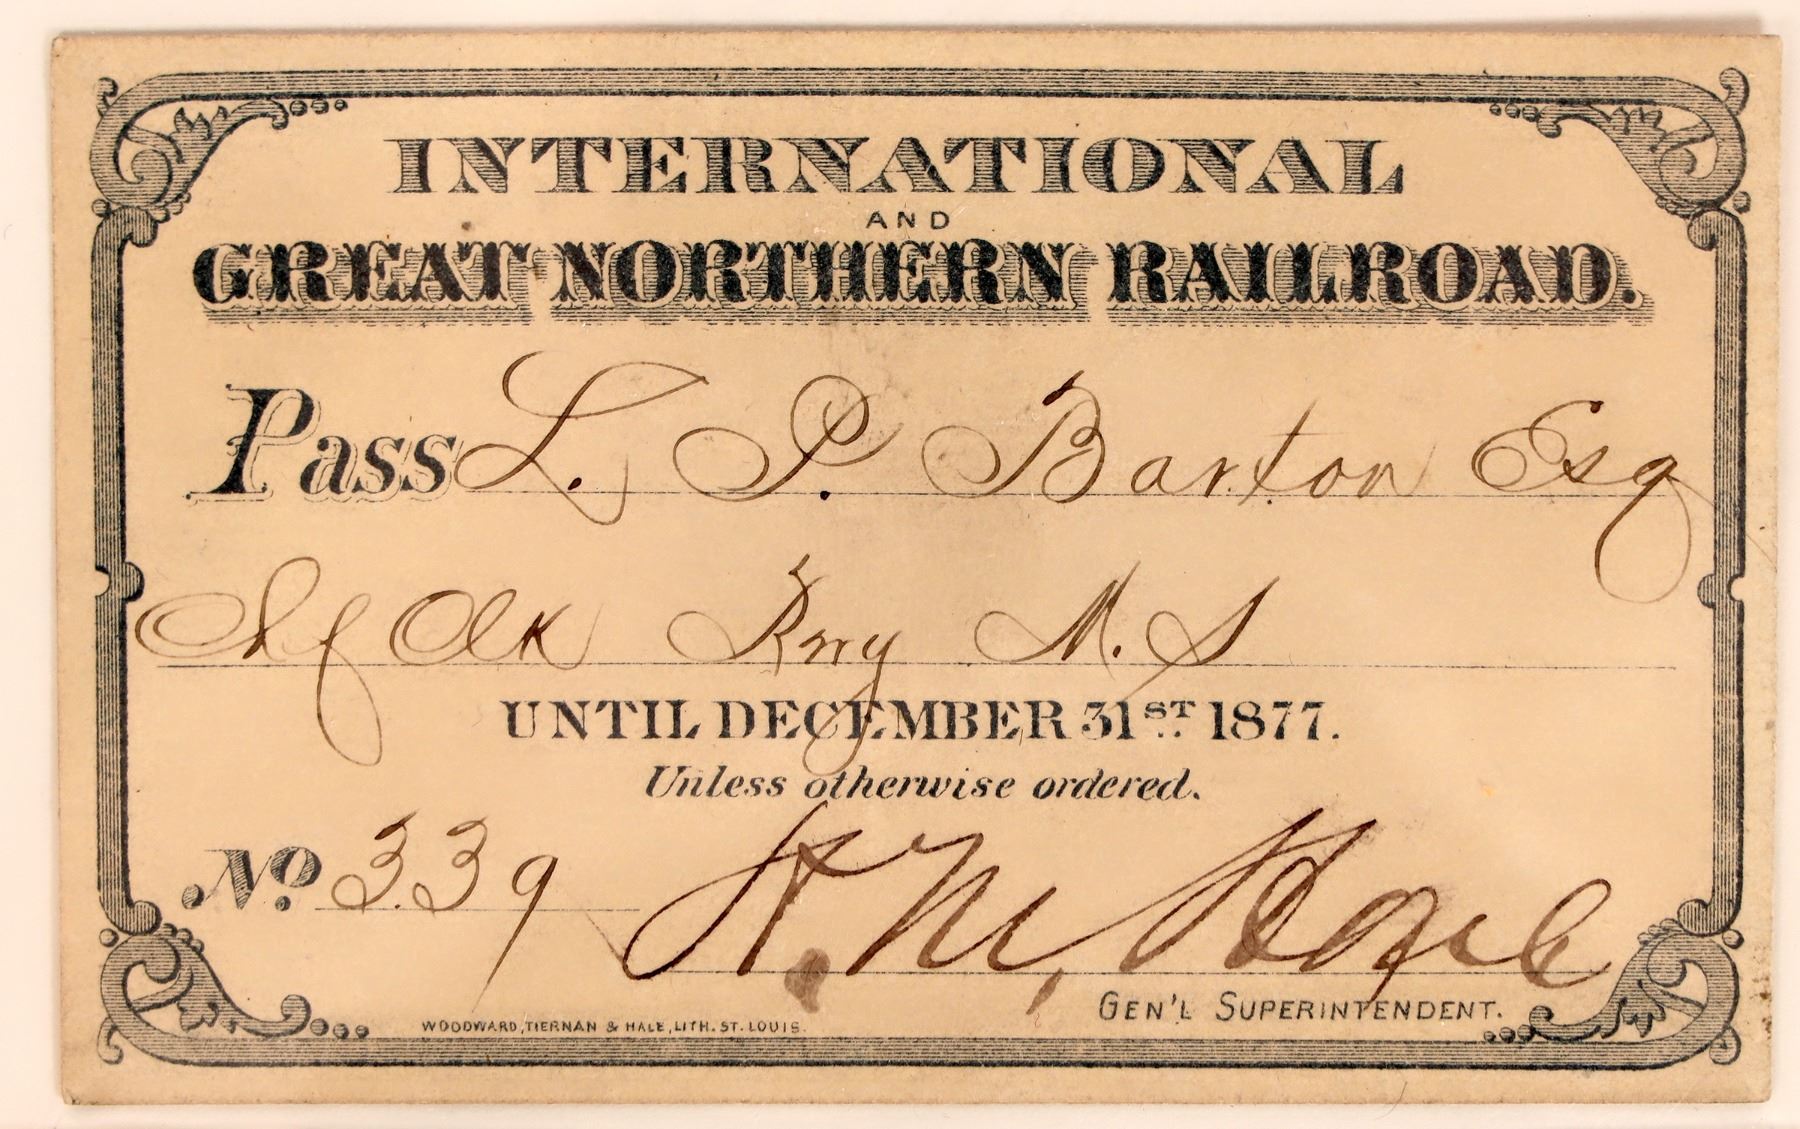 INTERNATIONAL
AND
GREAT NORTHERN RAILROAD.
Pass L. P. Barton Esq
Chf Clk Rwy M. S
UNTIL DECEMBER 31ST 1877.
Unless otherwise ordered.
No. 339 H. M. Hoxie
GEN'L SUPERINTENDENT.
WOODWARD, TIERNAN & HALE, LITH. ST. LOUIS.